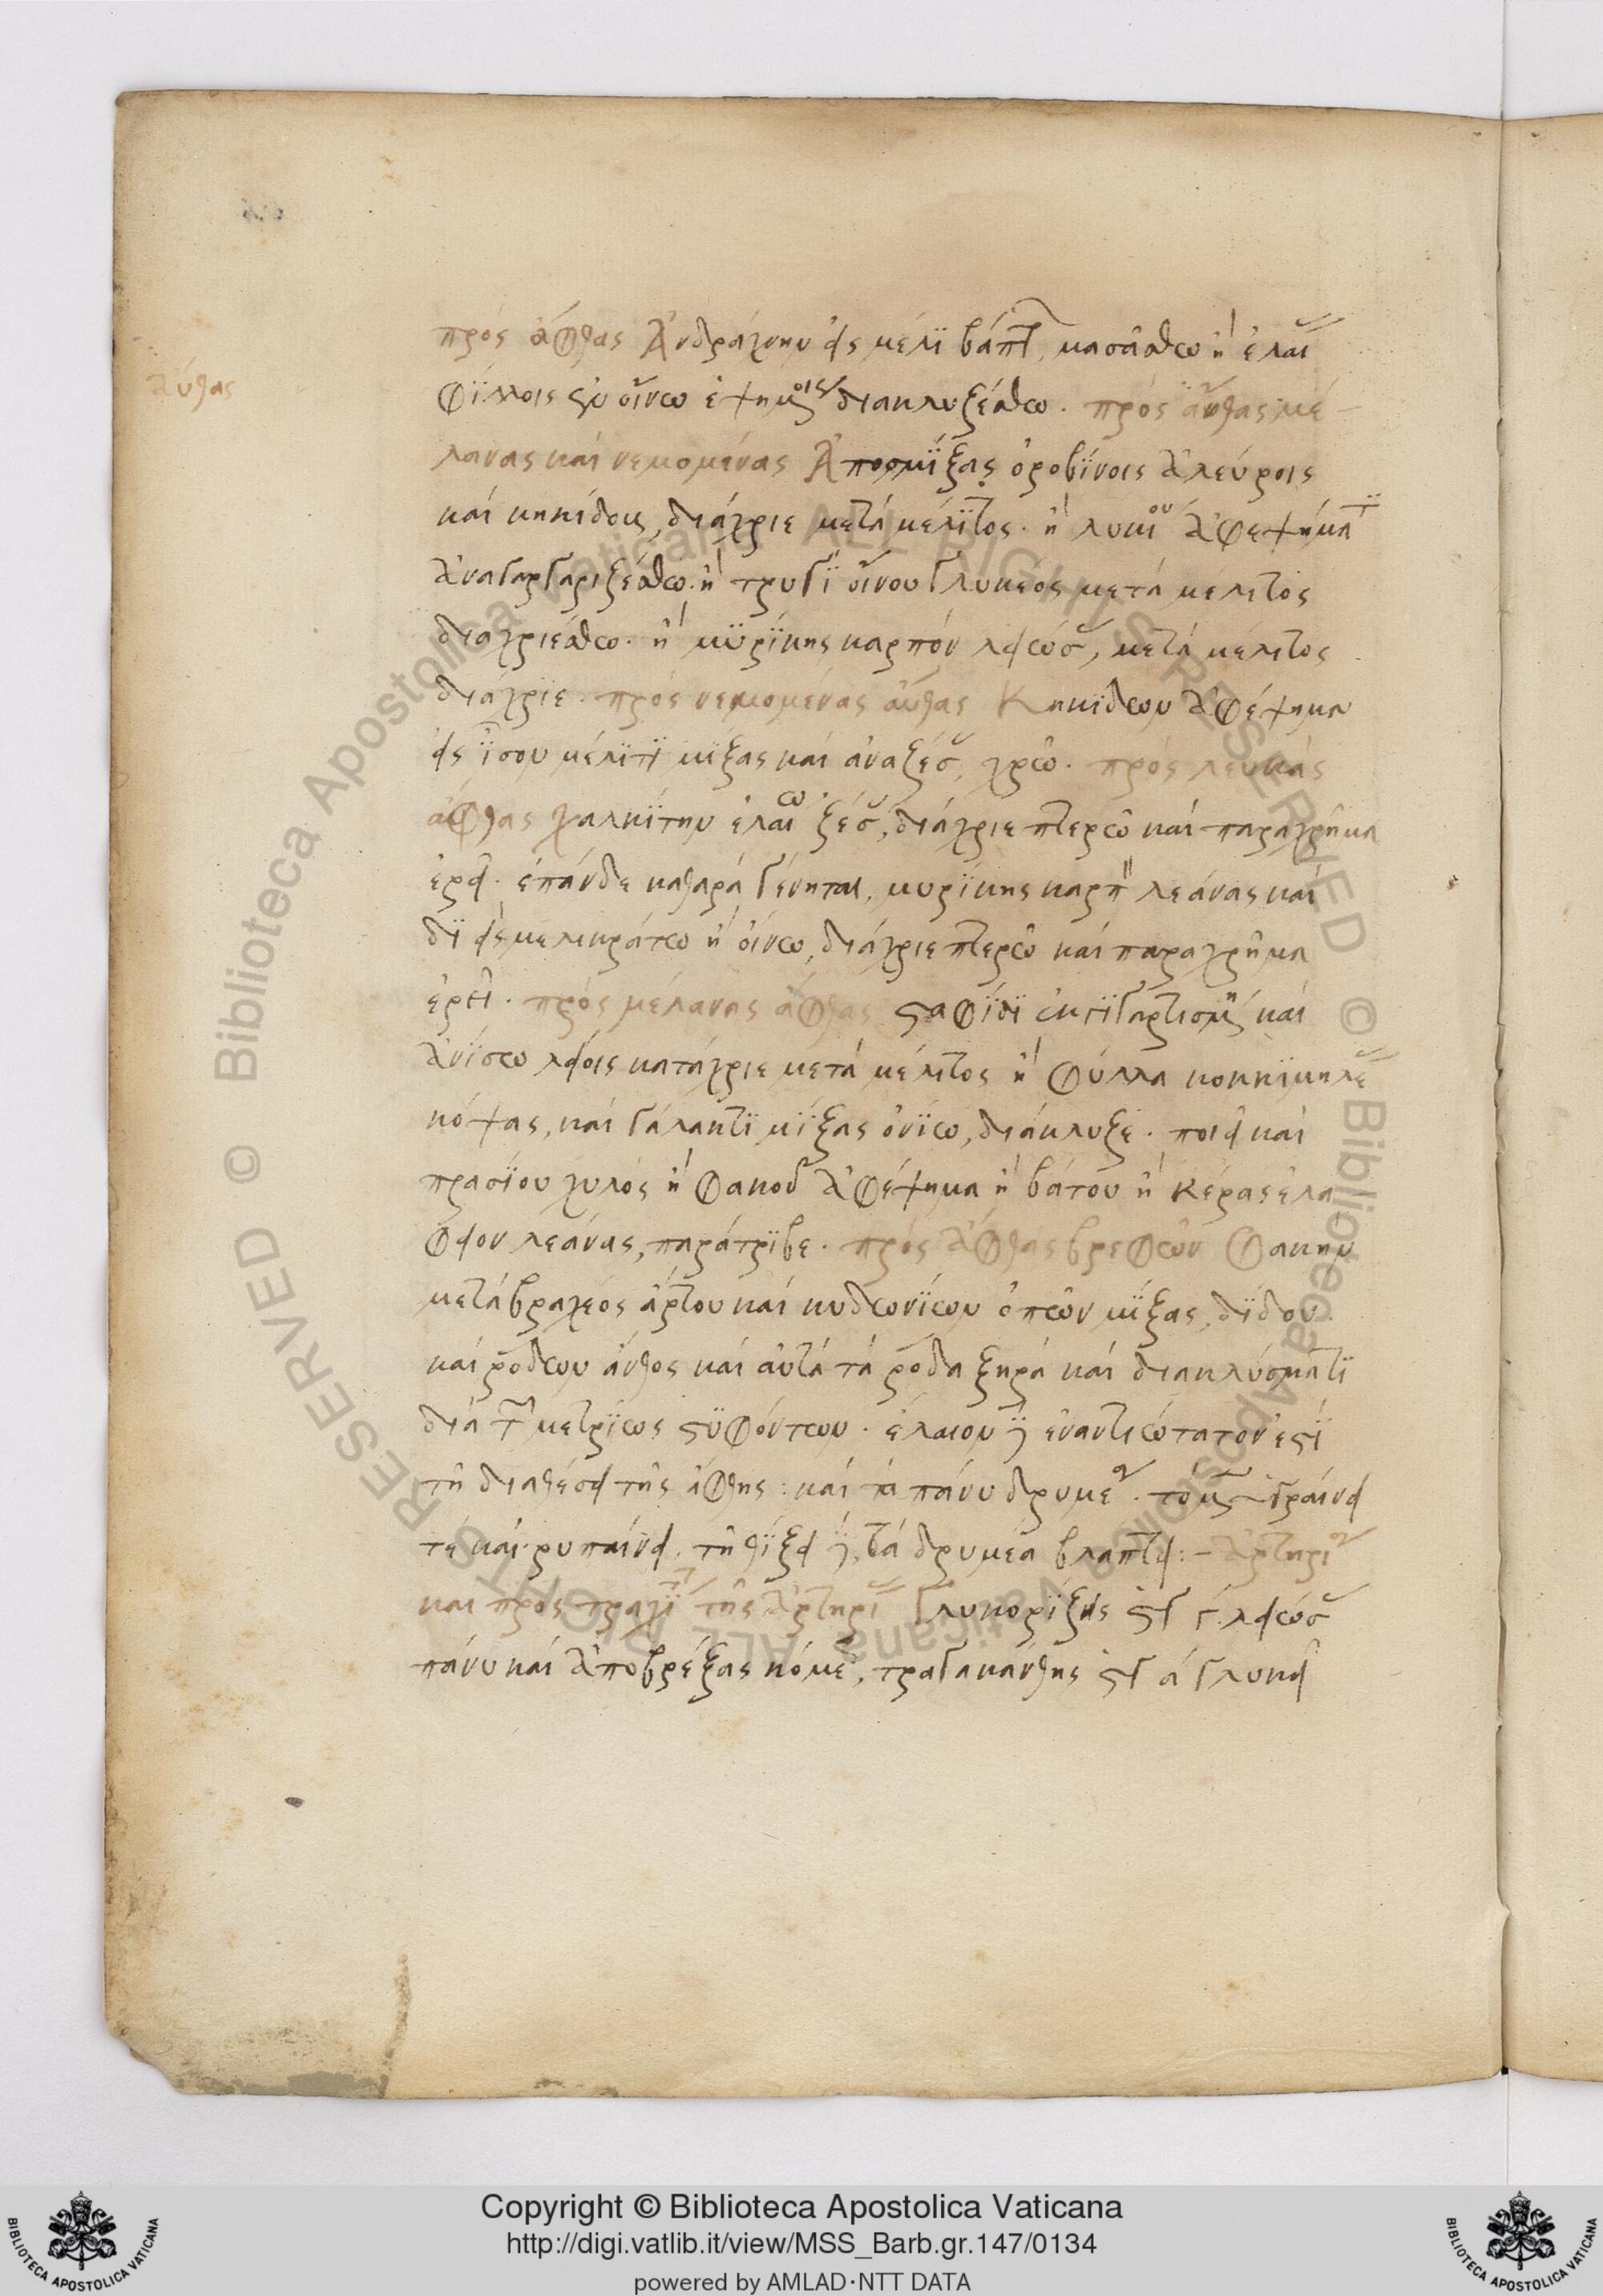 πρὸς ἄφθας Ἀνδράχνην εἰς μέλϊ βάπτ μασάσθω ἢ ἐλαί
ἄφθας
φΰλλοις σὺν οἴνω ἑψημοις διακλυζέσθω. πρὸς ἄφθας μέ-
λανας καὶ νεμομένας Ἀποσμΐξας ὀροβΐνοις ἀλεύροις
καὶ κηκίδοις, διάχριε μετὰ μέλϊτος. ἢ λυκίου ἀφεψήματ
ἀναγαργαριζέσθω. ἢ τρυγΐ οἴνου γλυκέος μετὰ μέλιτος
διαχριέσθω. ἢ μϋρΐκης καρπὸν λειώσ, μετὰ μέλιτος
διάχρϊε. πρὸς νεμομένας ἄφθας Κηκΐδων ἀφέψημα
εἰς ἴσον μέλϊτϊ μΐξας καὶ ἀναζέσ, χρῶ. πρὸς λευκὰς
ἄφθας χαλκΐτην ἐλαίω ζέσ, διάχριε πτερῶ καὶ παραχρῆμα
ἐρεῖ. ἐπὰν δὲ καθαρὰ γένηται, μυρΐκης καρπ λεάνας καὶ
δϊεὶς μελικράτω ἢ οἴνω, διάχριε πτερῶ καὶ παραχρῆμα
ἐρεῖ. πρὸς μέλανας ἄφθας σταφΐδϊ ἐκγϊγαρτισμ καὶ
ἀνΐσω λείοις κατάχριε μετὰ μέλιτος ἢ φύλλα κοκκϊμηλε
κόψας, καὶ γάλακτϊ μΐξας ὀνΐω, διάκλυζε. ποιεῖ καὶ
πρασΐου χυλὸς ἢ φακοῦ ἀφέψημα ἢ βάτου ἢ κέρας ἐλά
φειον λεάνας, παράτρϊβε. πρὸς ἄφθας βρεφῶν Φακῆν
μετὰ βραχέος ἄρτου καὶ κυδωνΐων ὀπτῶν μΐξας, δΐδου.
καὶ ρόδων ἄνθος καὶ αὐτὰ τὰ ρόδα ξηρὰ καὶ διακλύσματϊ
διὰ τ μετρΐως στϋφόντων. ἔλαιον δὲ ἐναντιώτατον ἐστΐ
τῆ διαθέσει τῆς ἄφθης: καὶ τὰ πάνυ δρυμέα. τὸ μὲν ὑγραίνει
τὲ καὶ ρυπαίνει. τῆ θΐξει δὲ, τὰ δρυμέα βλάπτει:- ἀρτηρι
καὶ πρὸς τραχϊτ τῆς ἀρτηρΐ Γλυκορΐζης γ λειώσ
πάνυ καὶ ἀποβρέξας κόμε, τραγακάνθης ἀ γλυκεῖ
Copyright © Biblioteca Apostolica Vaticana
http://digi.vatlib.it/view/MSS_Barb.gr.147/0134
powered by AMLAD·NTT DATA
BIBLIOTECA APOSTOLICA VATICANA
BIBLIOTECA APOSTOLICA VATICANA
© Biblioteca Apostolica Vaticana ALL RIGHTS RESERVED
© Biblioteca Apostolica Vaticana ALL RIGHTS RESERVED